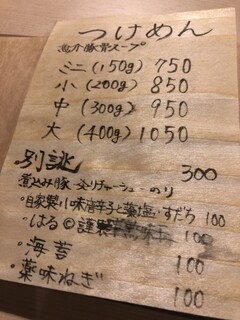 つけめん
魚介豚骨スープ
ミニ(150g) 750
小(200g) 850
中(300g) 950
大(400g) 1050
別誂
煮込み豚・炙りチャーシュー・のり 300
・自家製小味唐辛子と藻塩・すだち 100
・はる©謹製 100
・海苔 100
・薬味ねぎ 100